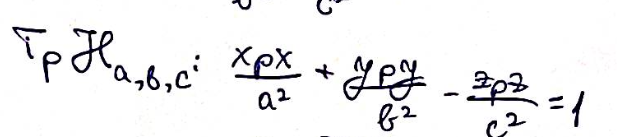 T_p ℋ_{a,b,c}: \frac{x_p x}{a^2} + \frac{y_p y}{b^2} - \frac{z_p z}{c^2} = 1